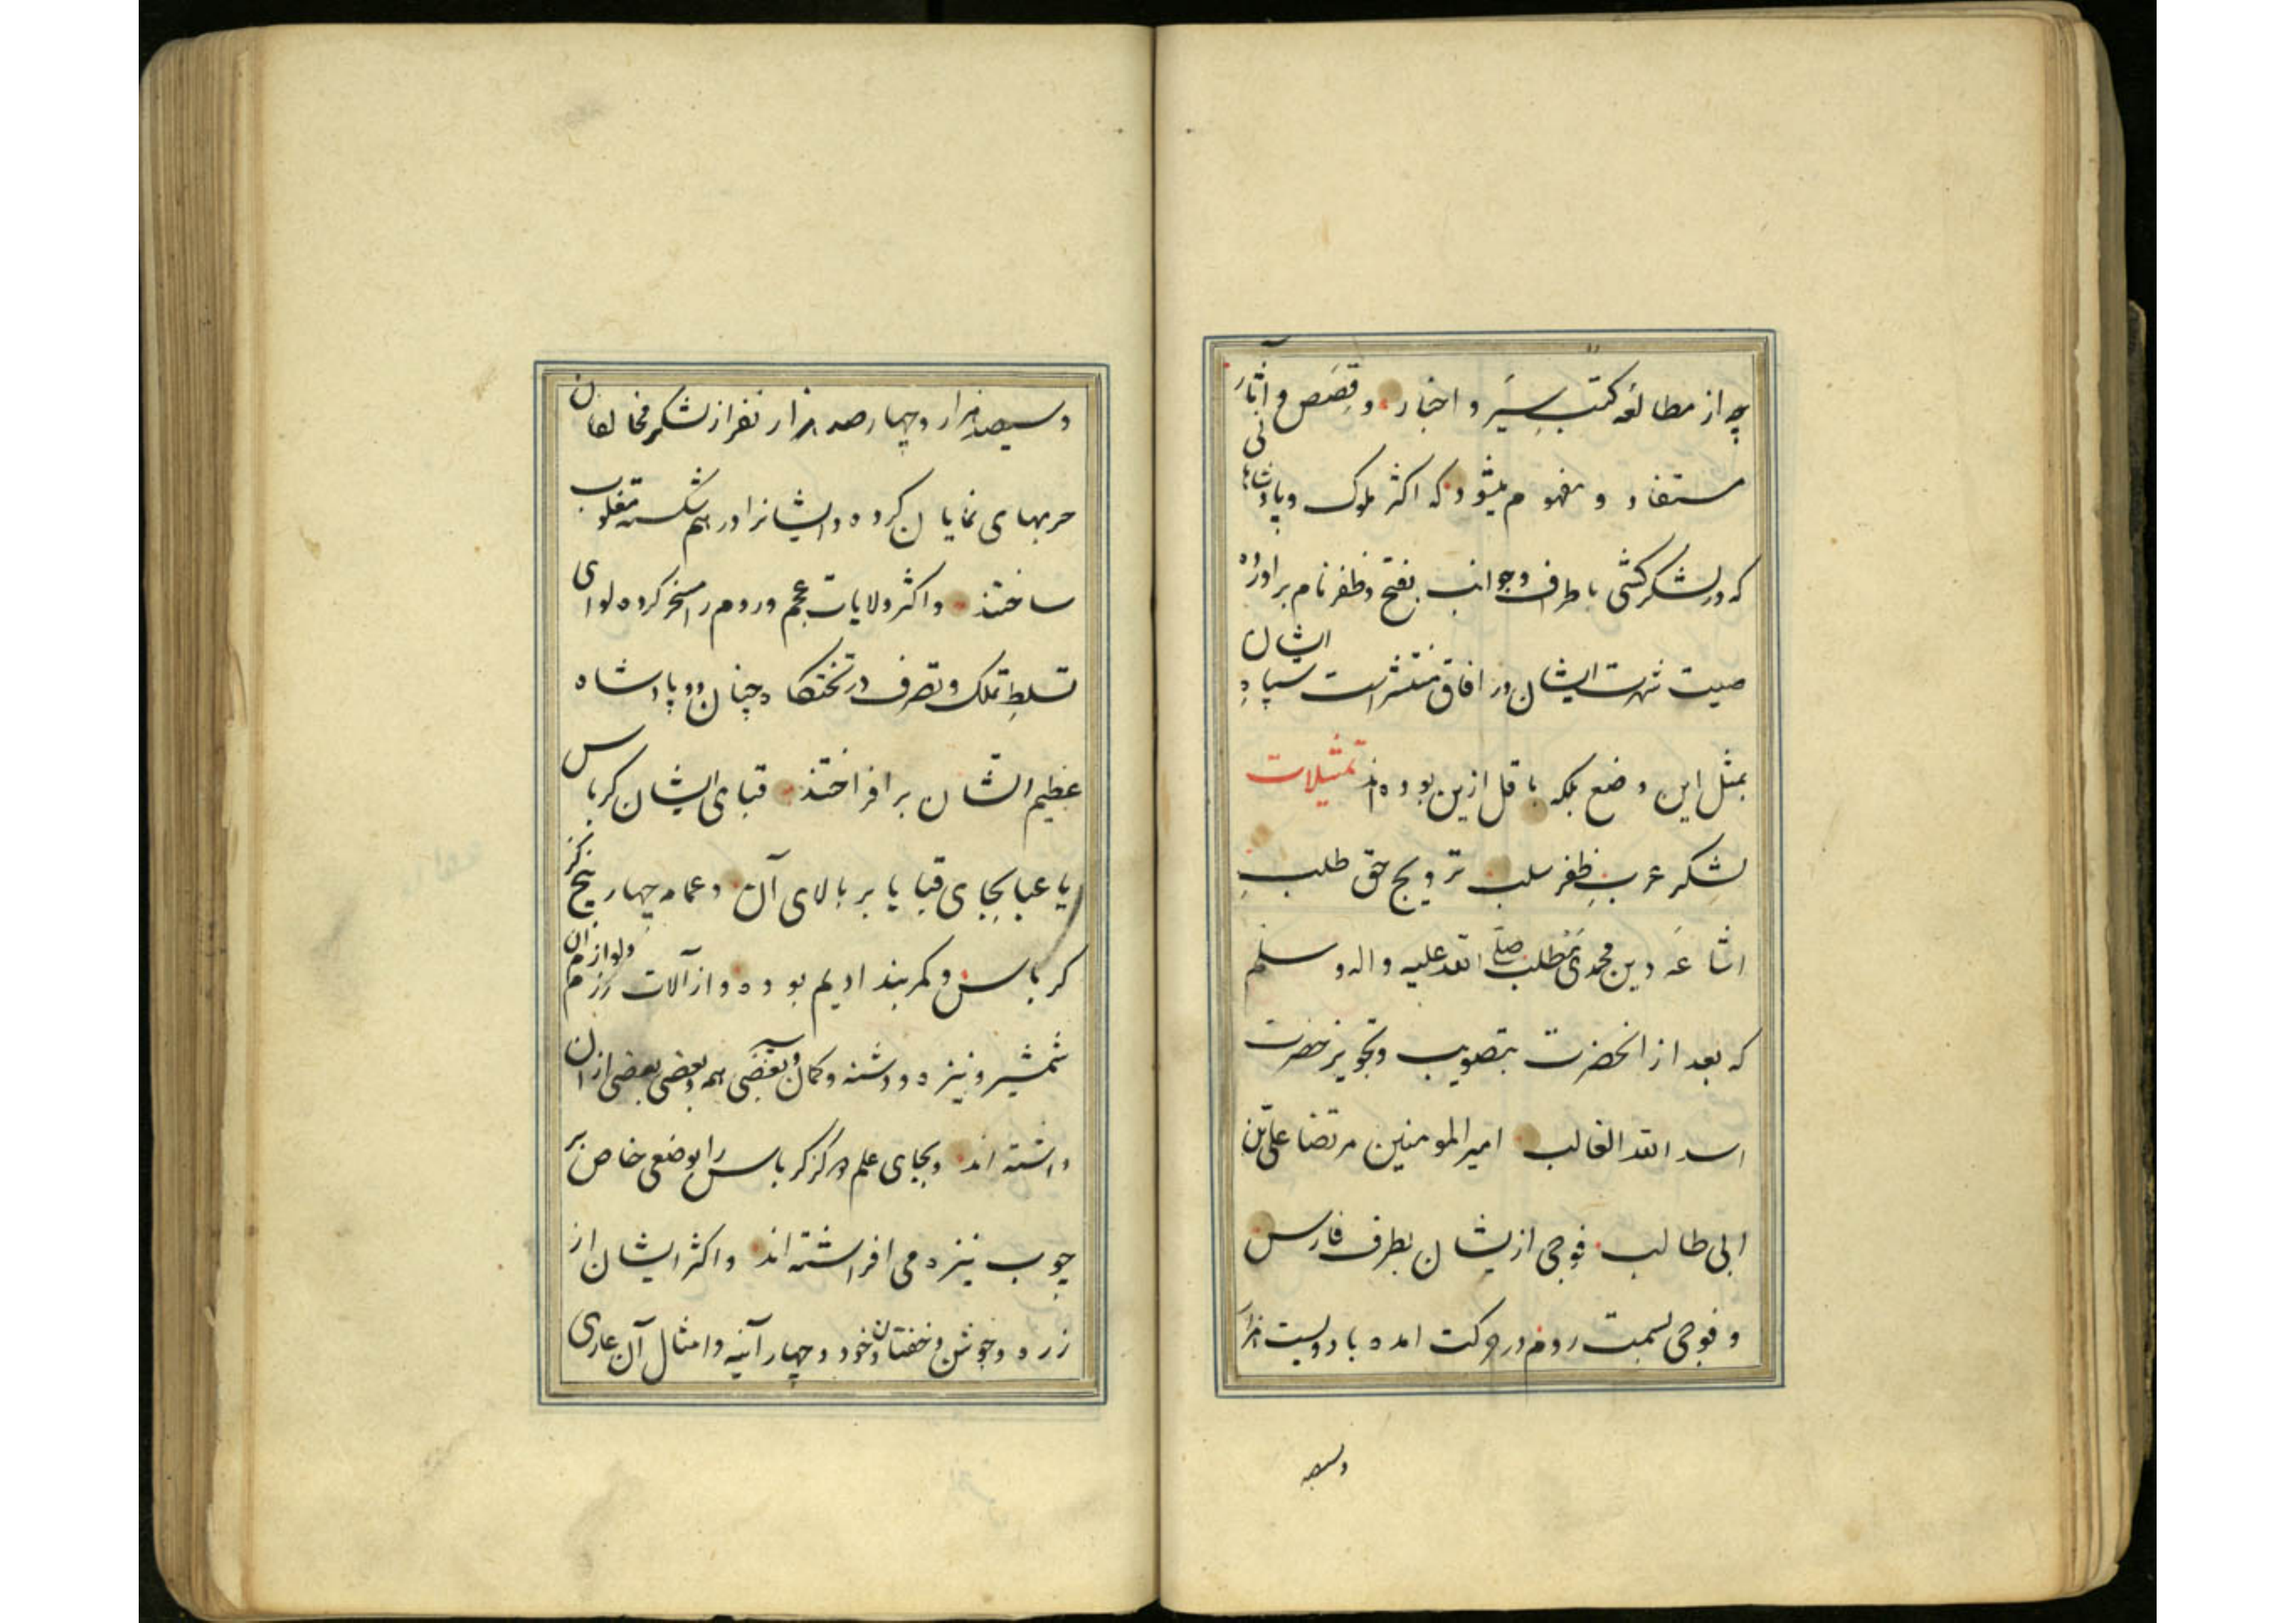 چه از مطالعه کتب سِیَر و اخبار و قِصَص و آثار
مستفاد و مفهوم میشود که اکثر ملوک و پادشاهانی
که در لشکرکشی باطراف و جوانب بفتح و ظفر نام برآورده
صیت شهرت ایشان در افاق منتشر است سپاهِ ایشان
بمثل این وضع بلکه باقل ازین بوده اند تمثیلات
لشکرِ عربِ ظفر سلب ترویج حق طلبِ
اشاعَه دین محمدی مطلب صلی الله علیه واله وسلم
که بعد از انحضرت بتصویب و تجویز حضرت
اسد الله الغالب امیر المومنین مرتضا علی بن
ابی طالب فوجی از یشان بطرف فارس
و فوجی بسمت روم در حرکت امده با دویست هزار
وسیصد
وسیصد هزار و چهار صد هزار نفر از لشکر مخالفان
حربهای نمایان کرده و ایشانرا در هم شکسته مغلوب
ساختند و اکثر ولایات عجم و روم را مسخر کرده لوای
تسلطِ تملک و تصرف در تختکاه چنان دو پادشاه
عظیم الشان بر افراختند قبای ایشان کرباس
یا عبا بجای قبا یا بر بالای آن و عمامه چهار پنج گز
کرباس و کمربند ادیم بوده و از آلات رزم و لوازم آن
شمشیر و نیزه و دشنه و کمان و بعضی همه و بعضی بعضی از ان
داشته اند و بجای علم هر کز کرباس را بوضعی خاص بر
چوب نیزه می افراشته اند و اکثر ایشان از
زره و جوشن و خفتان و خود و چهار آینه و امثال آن عاری